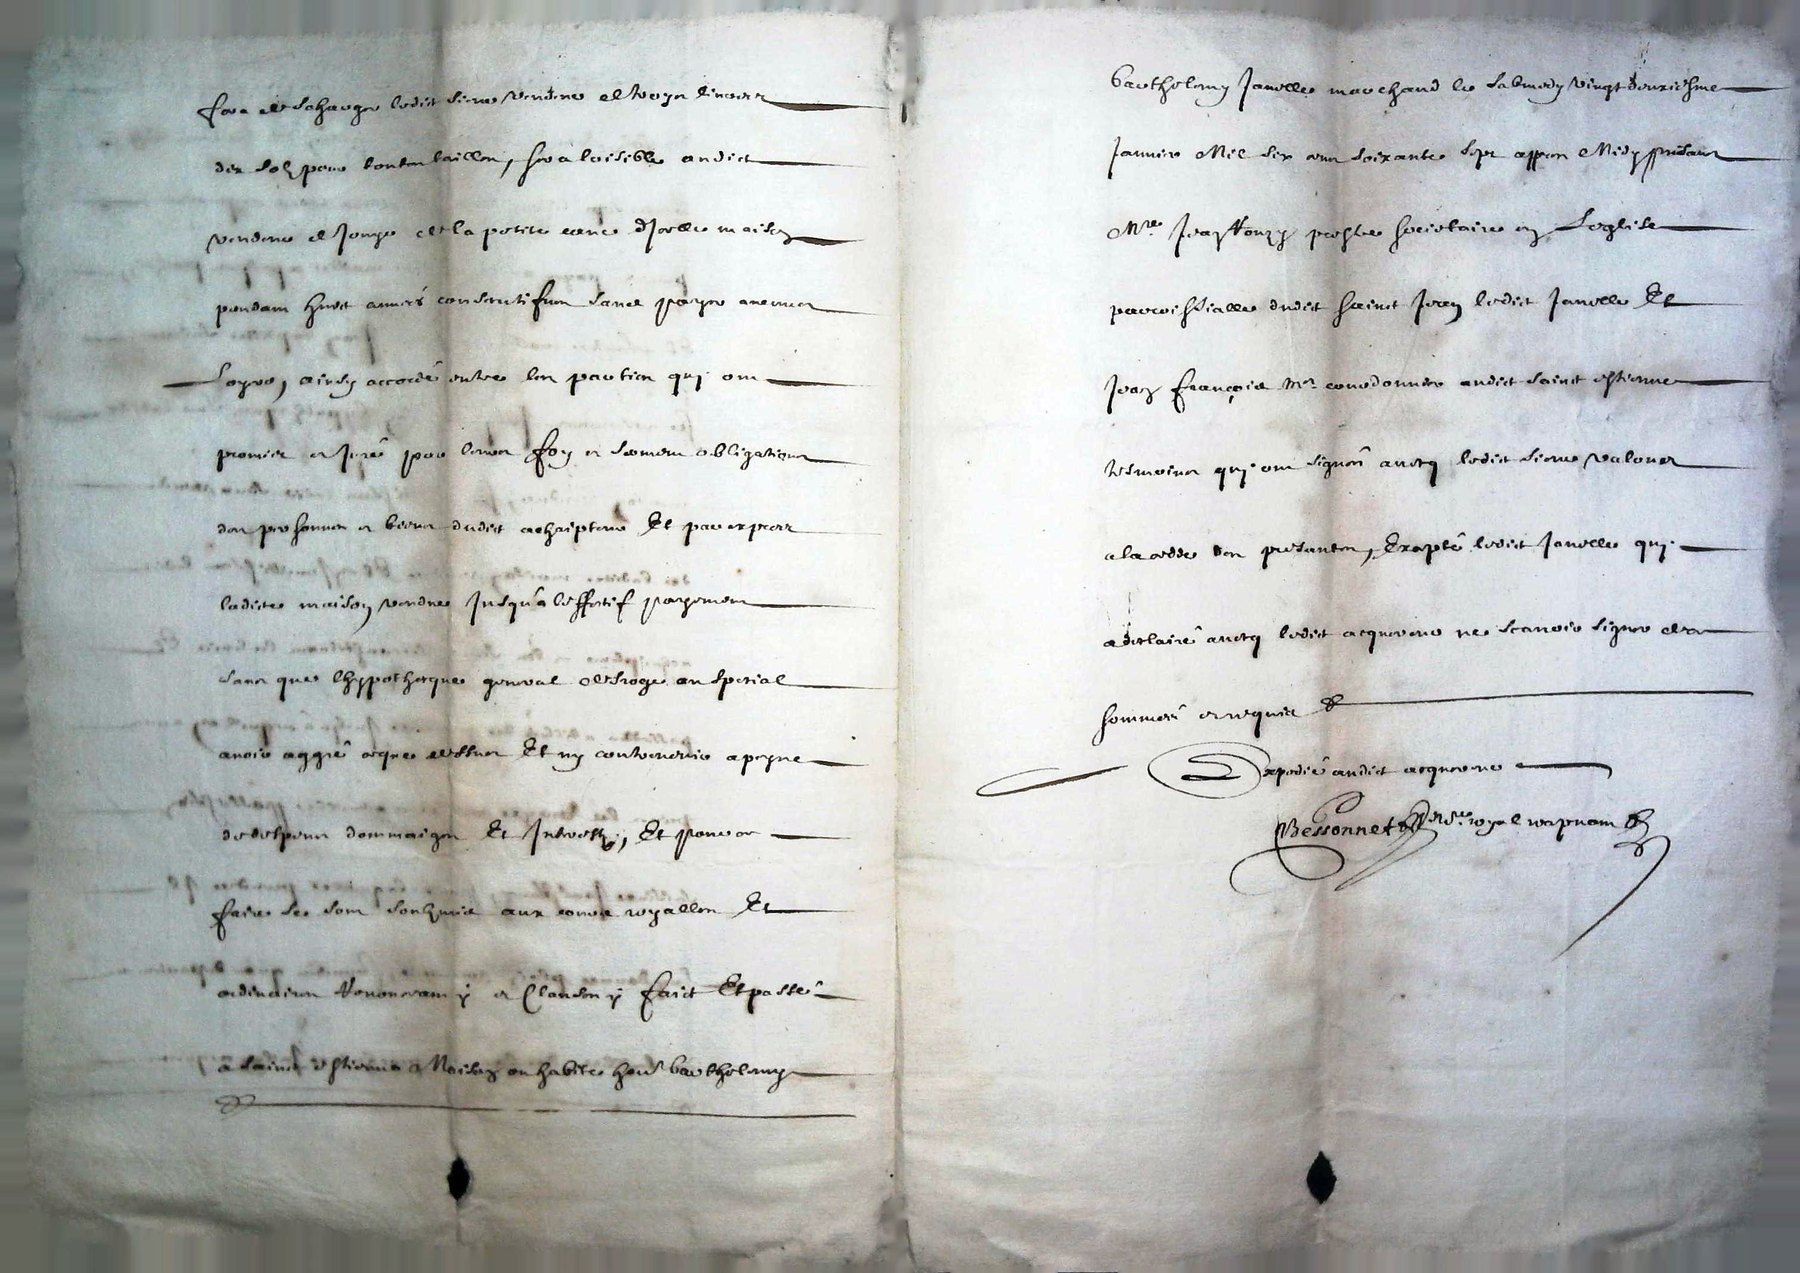 fera descharger ledict sieur vendeur
dix solz pour toutte taillon, sera loisible audict
vendeur de jouyr de la petite cave d'jcelle maison
pendant huict années consecutifves sans payer aucungs
Loyers, ainsy accordé entre les parties quj ont
promis et juré par leurs foy et serment obligations
des personnes et biens dudict achaipteur Et par expres
ladicte maison vendue jusqu'a l'effectif payement
sans que l'hypotheque general desroge au special
avoir aggré acque dessus Et ny contrevenir a peyne
de despens dommaiges Et Interestz, Et pour ce
faire se sont soubmis aux cours royalles Et
ordinaires faict Et passé
a sainct Estienne Maison ou habite hon. Barthelemy
Barthelemy Janolle marchand le sabmedy vingt deuxiesme
Janvier Mil six cent soixante sept appres Midy presant
Mre Jean prestre societaire en L'eglise
parroissialle dudict sainct Jean ledict Janolle Et
Jean françois Mre courdonnier audict sainct estienne
tesmoings quj ont signés avecq ledict sieur valous
a la cedde des presantes, Exapté ledict Janolle quj
a declairé avecq ledict acquereur ne scavoir signer de ce
sommés et requis
Expedié audict acquereur
Bessonnet royal